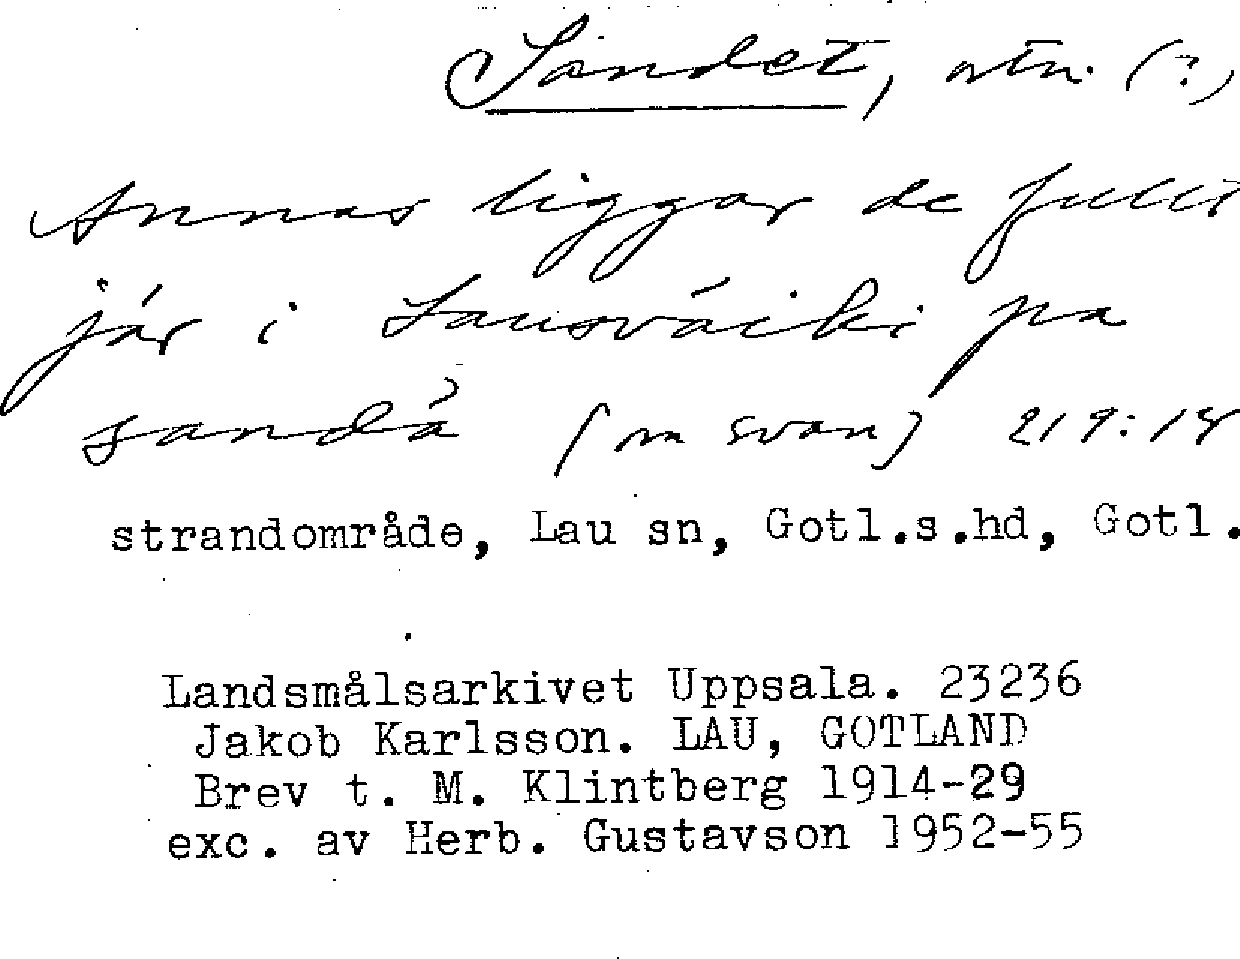 Sandet, ortn. (?)
Annas liggar de fullt
jár i Lausváiki pa
sandå (om svan) 219:18
strandområde, Lau sn, Gotl.s.hd, Gotl.
Landsmålsarkivet Uppsala. 23236
Jakob Karlsson. LAU, GOTLAND
Brev t. M. Klintberg 1914-29
exc. av Herb. Gustavson 1952-55